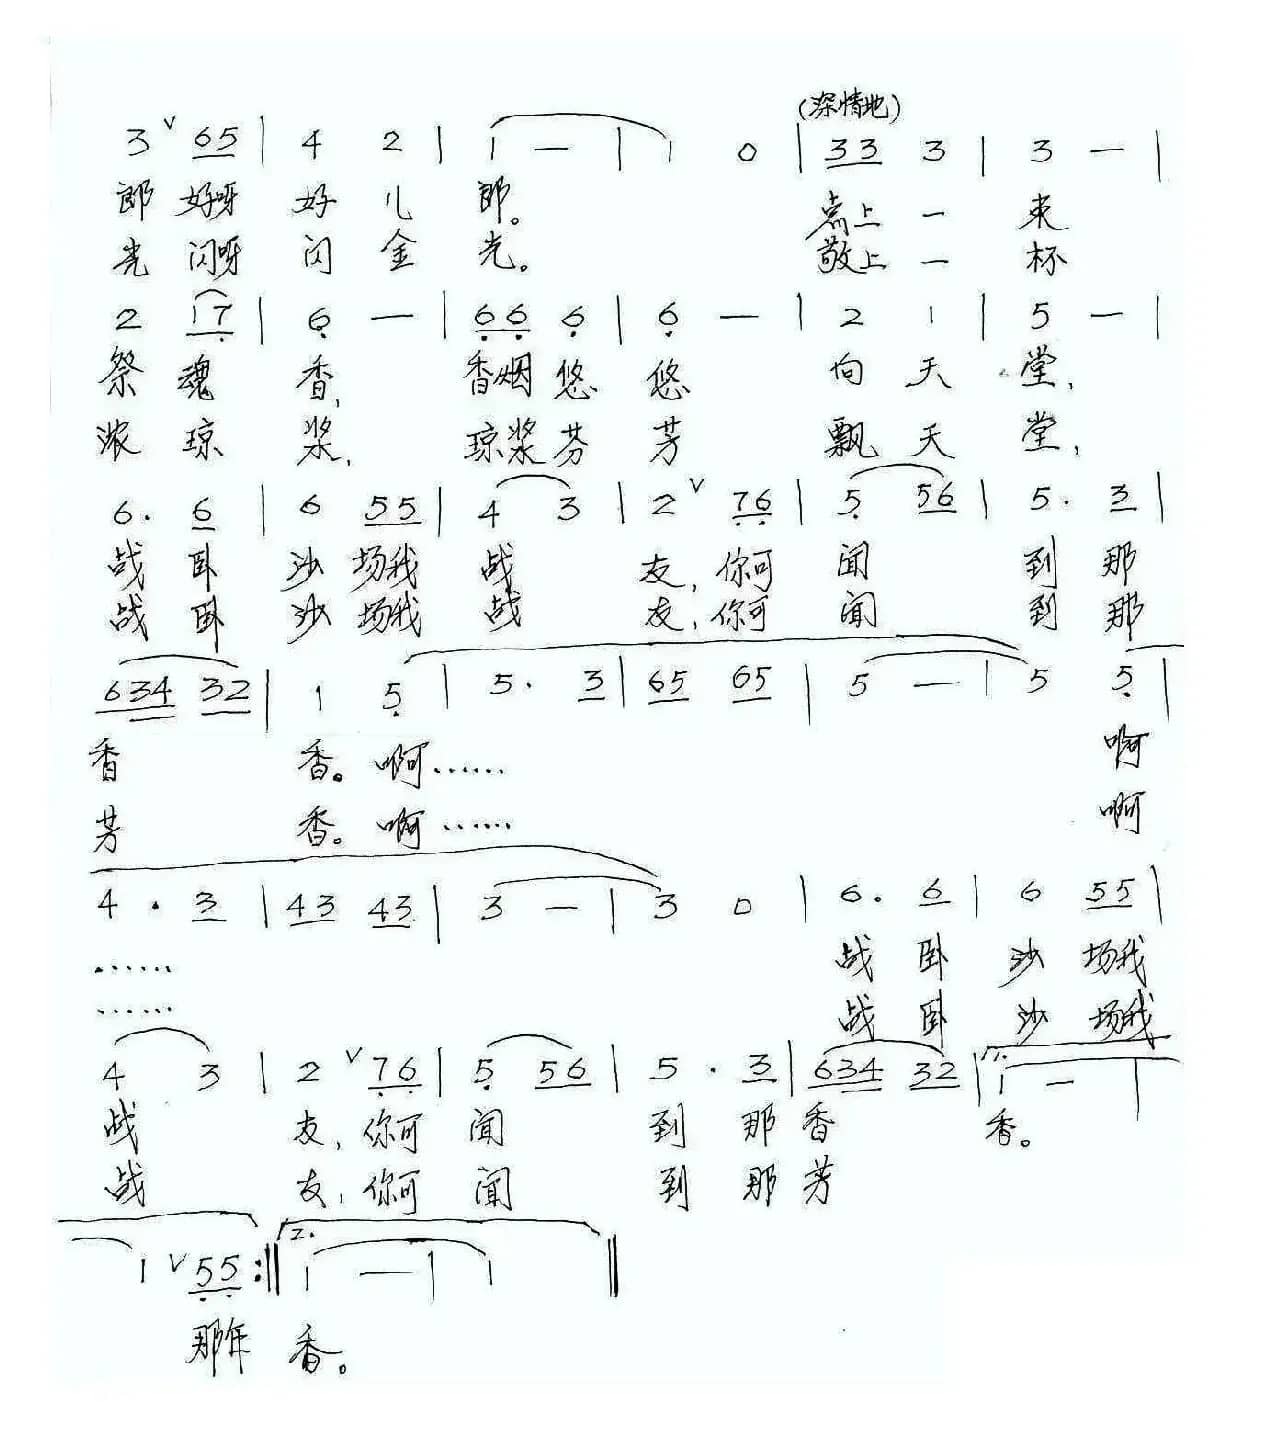 (深情地)
3 ∨ 65 | 4 2 | 1 — | 1 0 | 33 3 | 3 — |
郎 好呀 好 儿 郎。 点上 一 束
光 闪呀 闪 金 光。 敬上 一 杯
2 17 | 6 — | 66 6 | 6 — | 2 1 | 5 — |
祭 魂 香, 香烟 悠 悠 向 天 堂,
浓 琼 浆, 琼浆 芬 芳 飘 天 堂,
6. 6 | 6 55 | 4 3 | 2 ∨ 76 | 5 56 | 5. 3 |
战 卧 沙 场我 战 友, 你可 闻 到 那
战 卧 沙 场我 战 友, 你可 闻 到 那
634 32 | 1 5 | 5. 3 | 65 65 | 5 — | 5 5 |
香 香。 啊…… 啊
芳 香。 啊…… 啊
4. 3 | 43 43 | 3 — | 3 0 | 6. 6 | 6 55 |
…… 战 卧 沙 场我
…… 战 卧 沙 场我
4 3 | 2 ∨ 76 | 5 56 | 5. 3 | 634 32 | 1. 1 — |
战 友, 你可 闻 到 那 香 香。
战 友, 你可 闻 到 那 芳
1 ∨ 55 :‖ 2. 1 — | 1 ‖
那年 香。